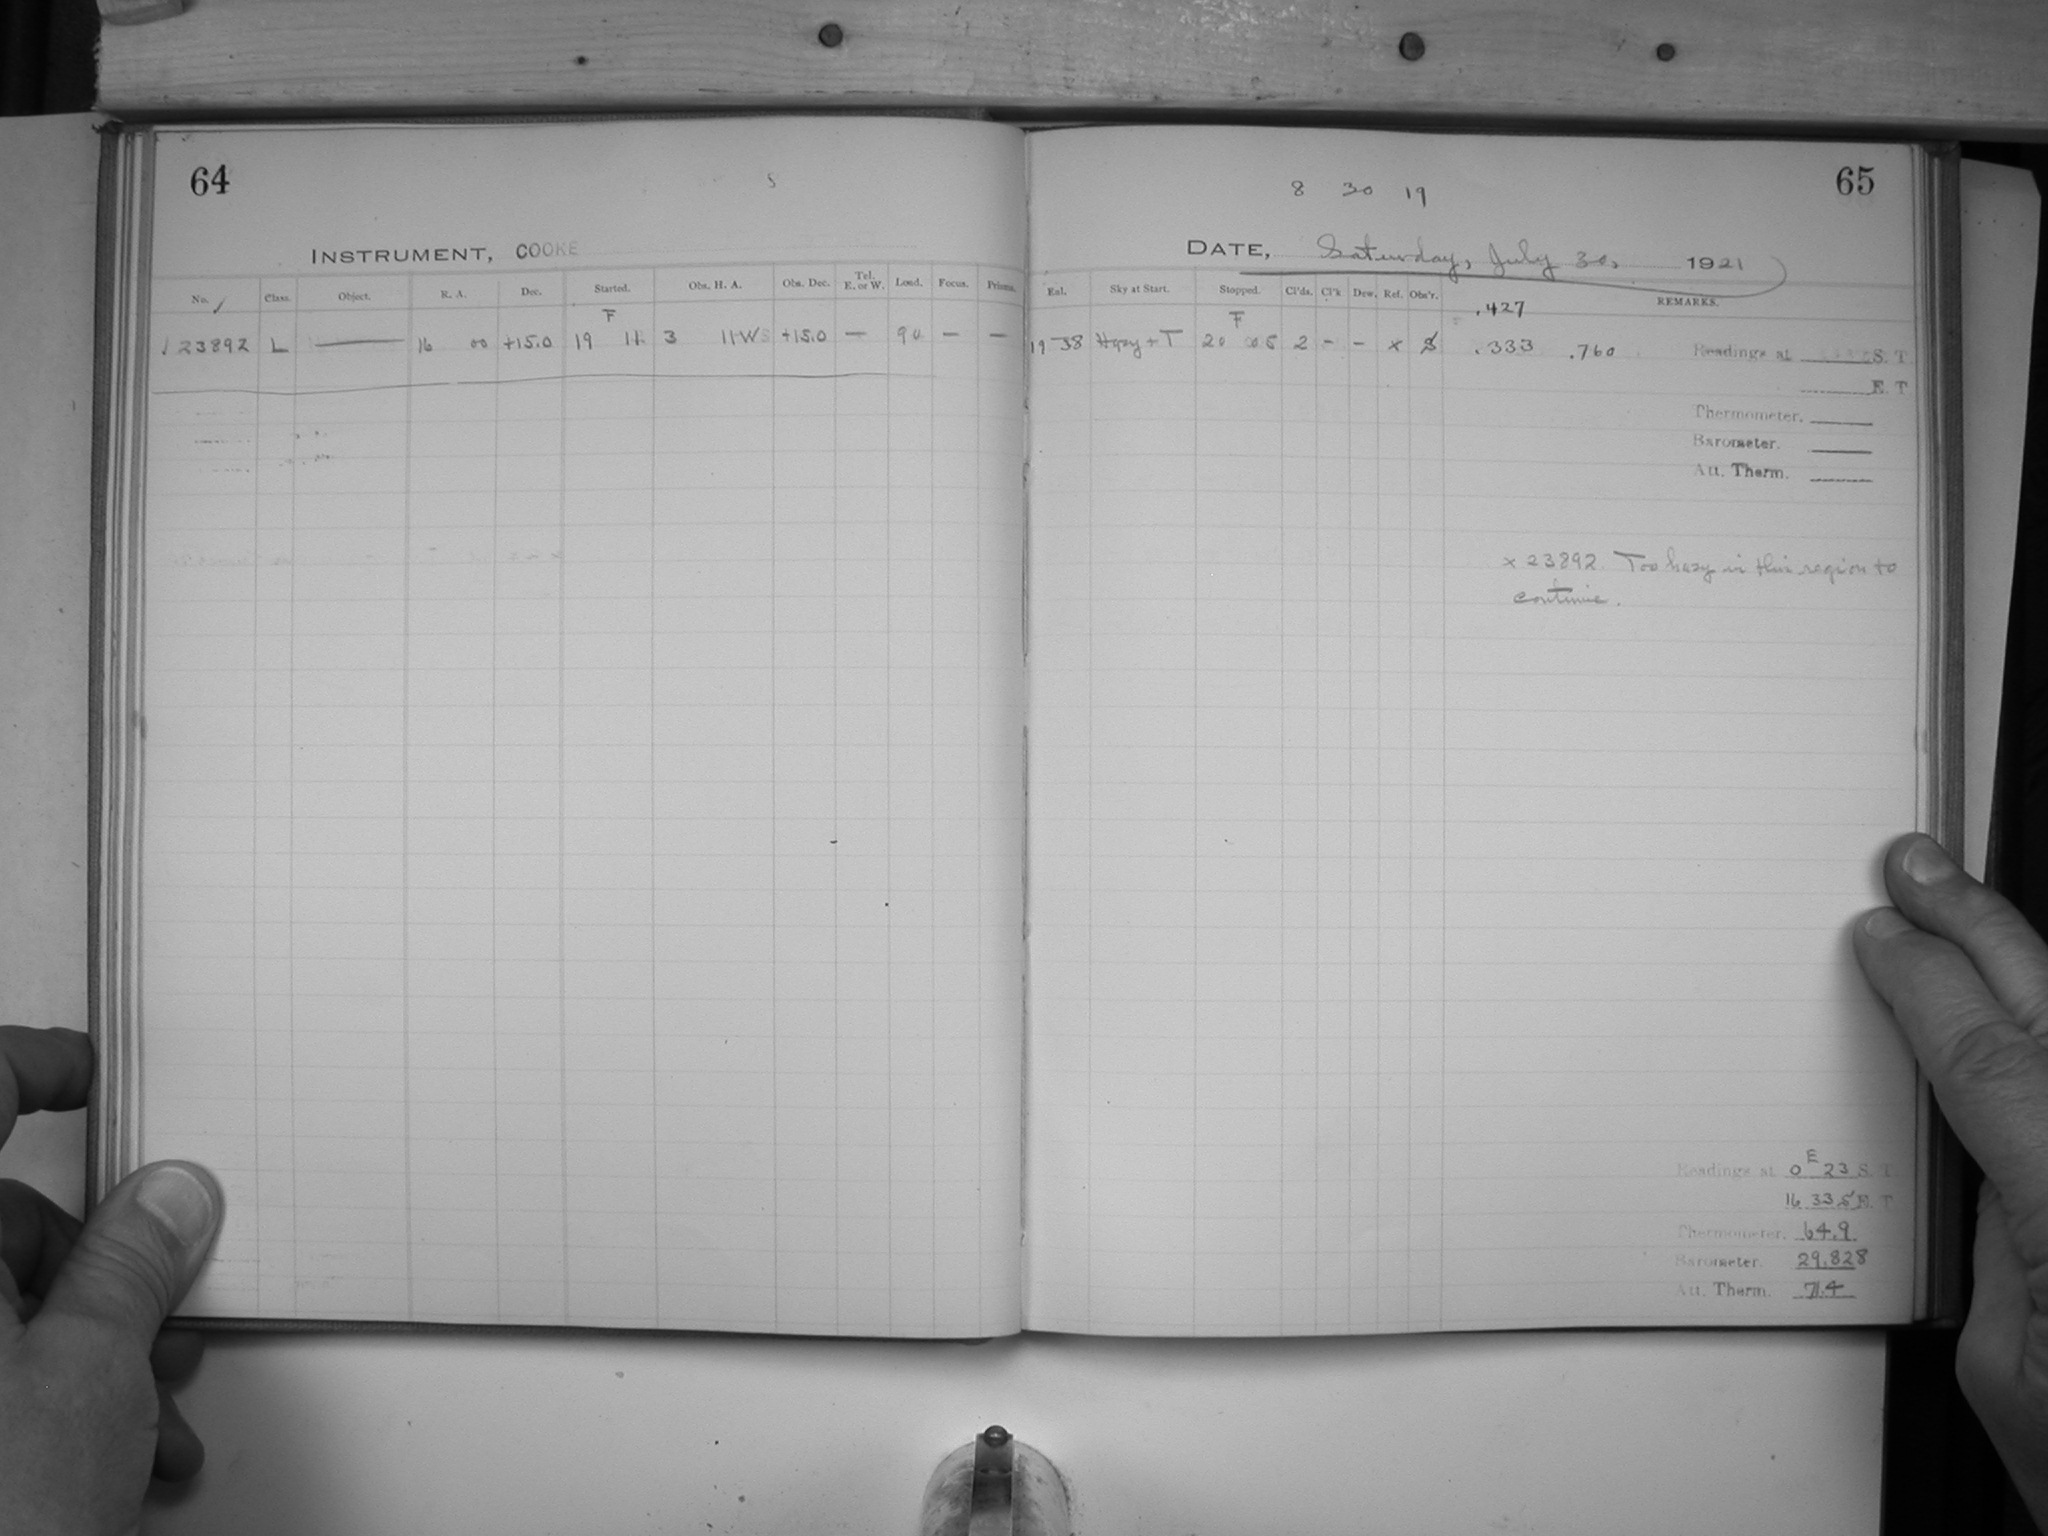 64
5
INSTRUMENT, COOKE
No. Class. Object. R. A. Dec. Started. Obs. H. A. Obs. Dec. Tel. E. or W. Load. Focus. Prisms.
F
23892 L — 16 00 +15.0 19 11 3 11 W +15.0 — 90 — —
65
8 30 19
DATE, Saturday, July 30, 1921
Exl. Sky at Start. Stopped. Cl'ds. Cl'k Dew. Ref. Obs'r. REMARKS.
.427
F
19 38 Hazy + T 20 05 2 - - x S .333 .760 Readings at S. T
E. T
Thermometer.
Barometer.
Att. Therm.
x 23892. Too hazy in this region to
continue.
E
Readings at 0 23 S. T
16 33 5 E. T
Thermometer. 64.9
Barometer. 29.828
Att. Therm. 71.4